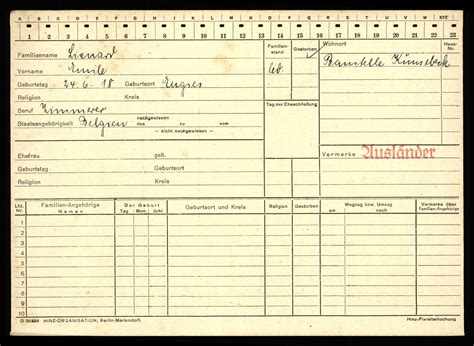 A B C D E F G H I J K L M N O P Q R S T U V W XYZ
1 2 3 4 5 6 7 8 9 10 11 12 13 14 15 16 17 18 19 20 21 22 23
Familienname Lienart
Familienstand
Gestorben
Wohnort
Haus-Nr.
Vorname Emile
led.
Baustelle Künsebeck
Geburtstag 24.6.18 Geburtsort Engies
Religion Kreis
Beruf Zimmerer
Tag der Eheschließung
Staatsangehörigkeit Belgien
nachgewiesen
des zu vom
— nicht nachgewiesen —
Ehefrau geb.
Vermerke Ausländer
Geburtstag Geburtsort
Religion Kreis
Lfd. Nr. Familien-Angehörige Namen Der Geburt Tag Mon. Jahr Geburtsort und Kreis Religion Gestorben Wegzug bzw. Umzug am nach Vermerke über Familien-Angehörige
1
2
3
4
5
6
7
8
9
10
HINZ-ORGANISATION, Berlin-Mariendorf.
Hinz-Fixreiterlochung